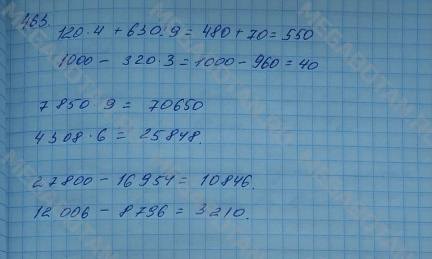 463.
120·4 + 630:9 = 480 + 70 = 550
1000 - 320·3 = 1000 - 960 = 40
7850·9 = 70650
4308·6 = 25848.
27800 - 16954 = 10846.
12006 - 8796 = 3210.